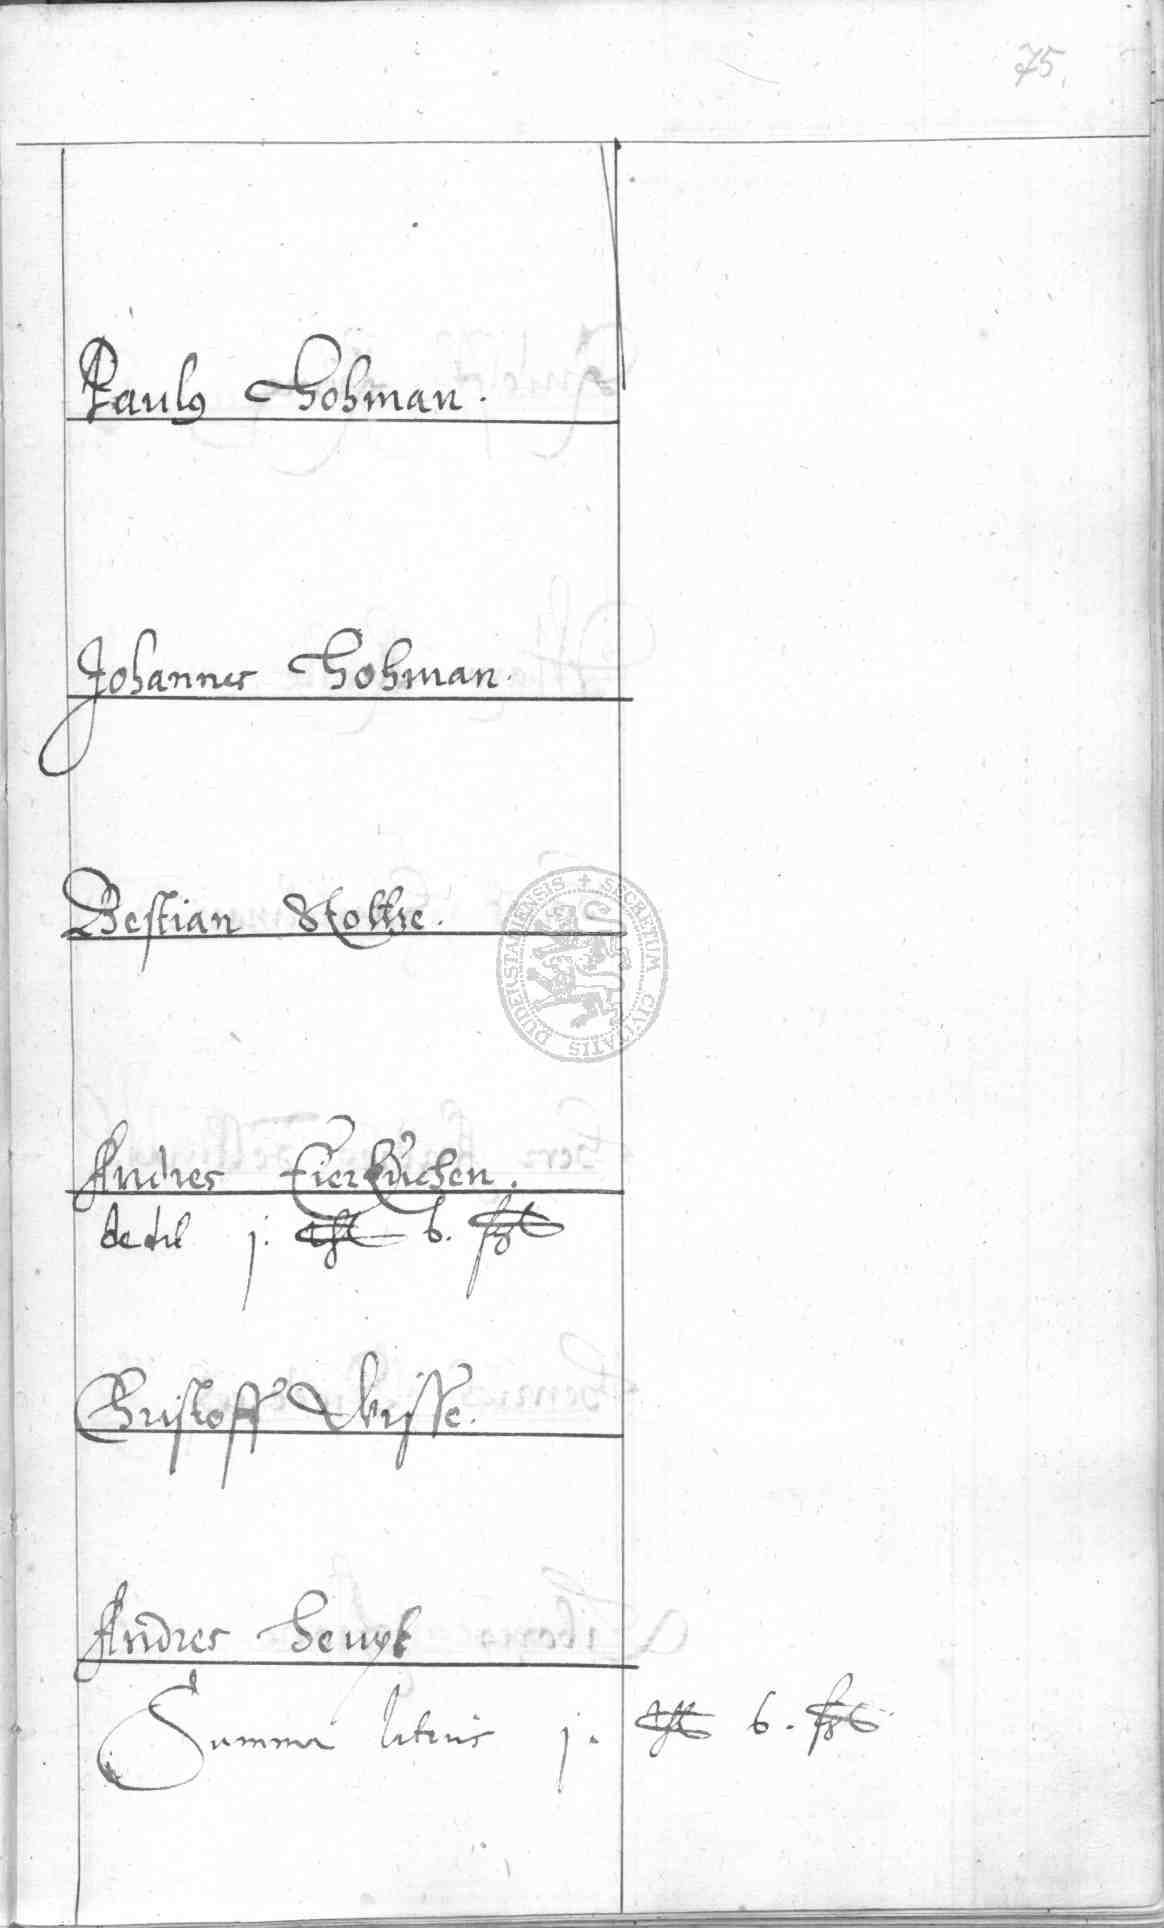 75
Paulus Hohman.
Johannes Hohman.
Bestian Nolthe.
Andres Eierkuchen.
dedit j. 6.
Christoff Wisse.
Andres
Summa lateris j. 6.
SECRETUM CIVITATIS DUDERSTADIENSIS